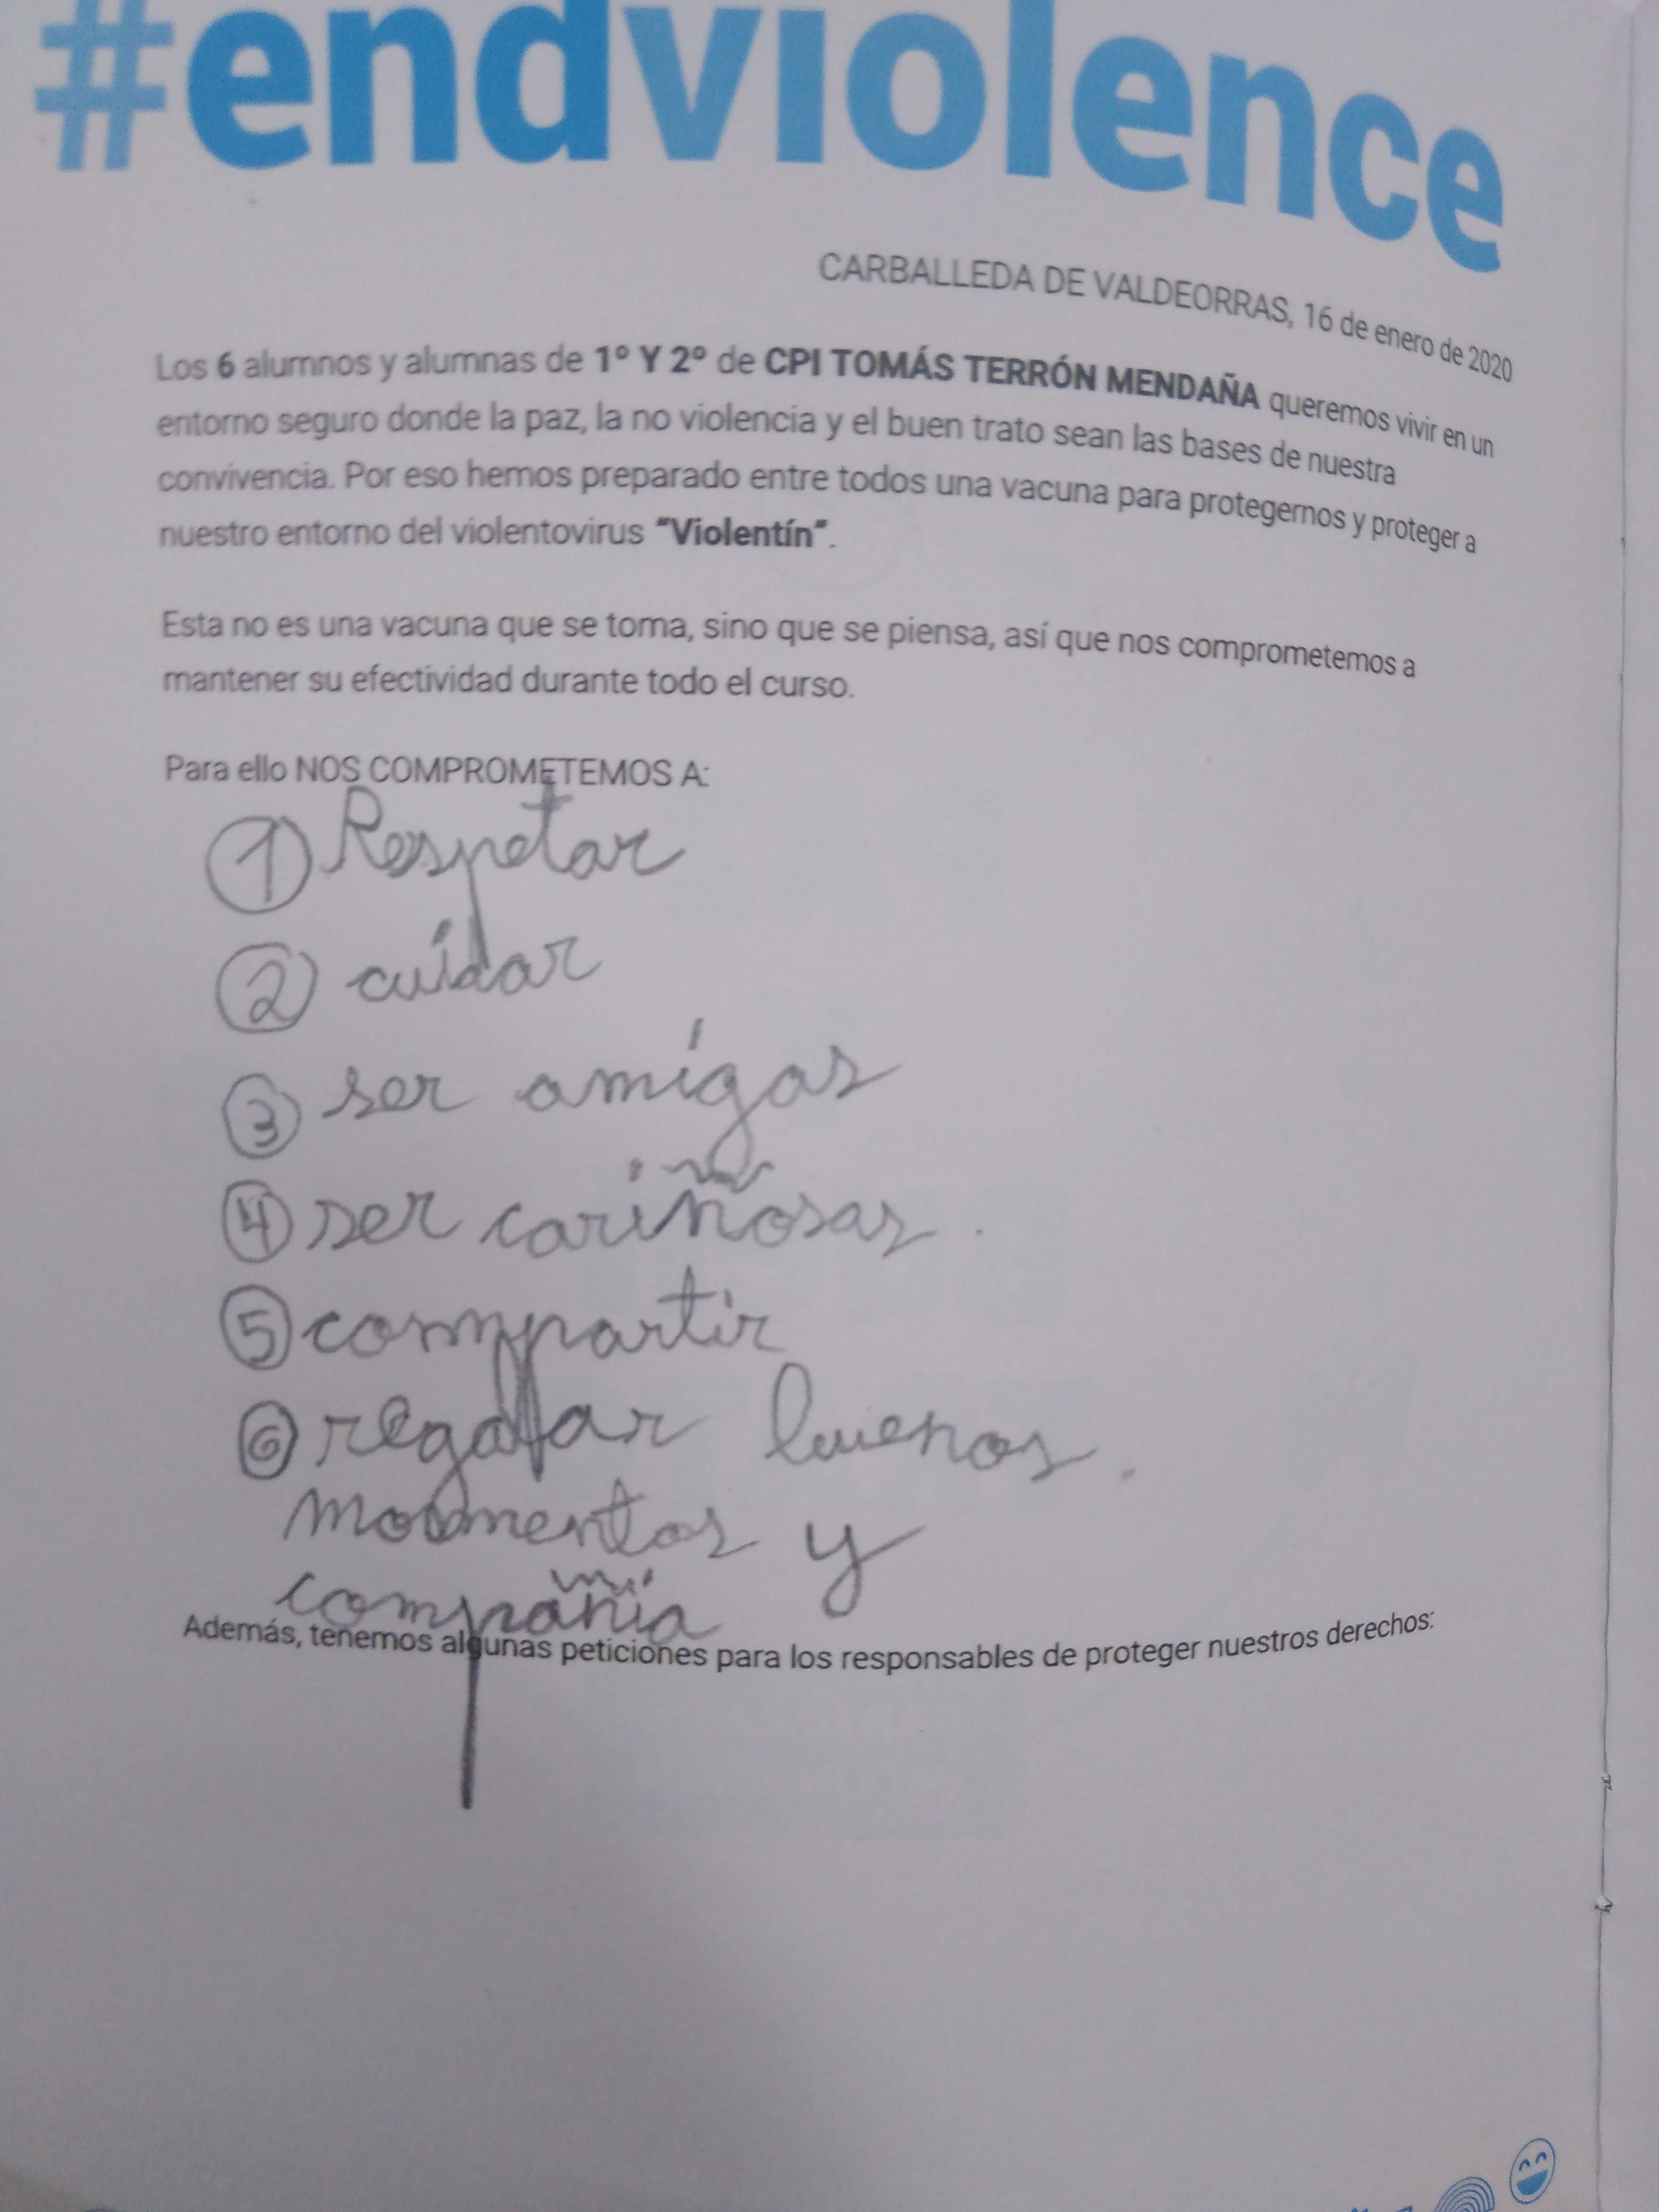 #endviolence
CARBALLEDA DE VALDEORRAS, 16 de enero de 2020
Los 6 alumnos y alumnas de 1º Y 2º de CPI TOMÁS TERRÓN MENDAÑA queremos vivir en un
entorno seguro donde la paz, la no violencia y el buen trato sean las bases de nuestra
convivencia. Por eso hemos preparado entre todos una vacuna para protegernos y proteger a
nuestro entorno del violentovirus "Violentín".
Esta no es una vacuna que se toma, sino que se piensa, así que nos comprometemos a
mantener su efectividad durante todo el curso.
Para ello NOS COMPROMETEMOS A:
1 Respetar
2 cuidar
3 ser amigas
4 ser cariñosas.
5 compartir
6 regalar buenos.
momentos y
compañía
Además, tenemos algunas peticiones para los responsables de proteger nuestros derechos: